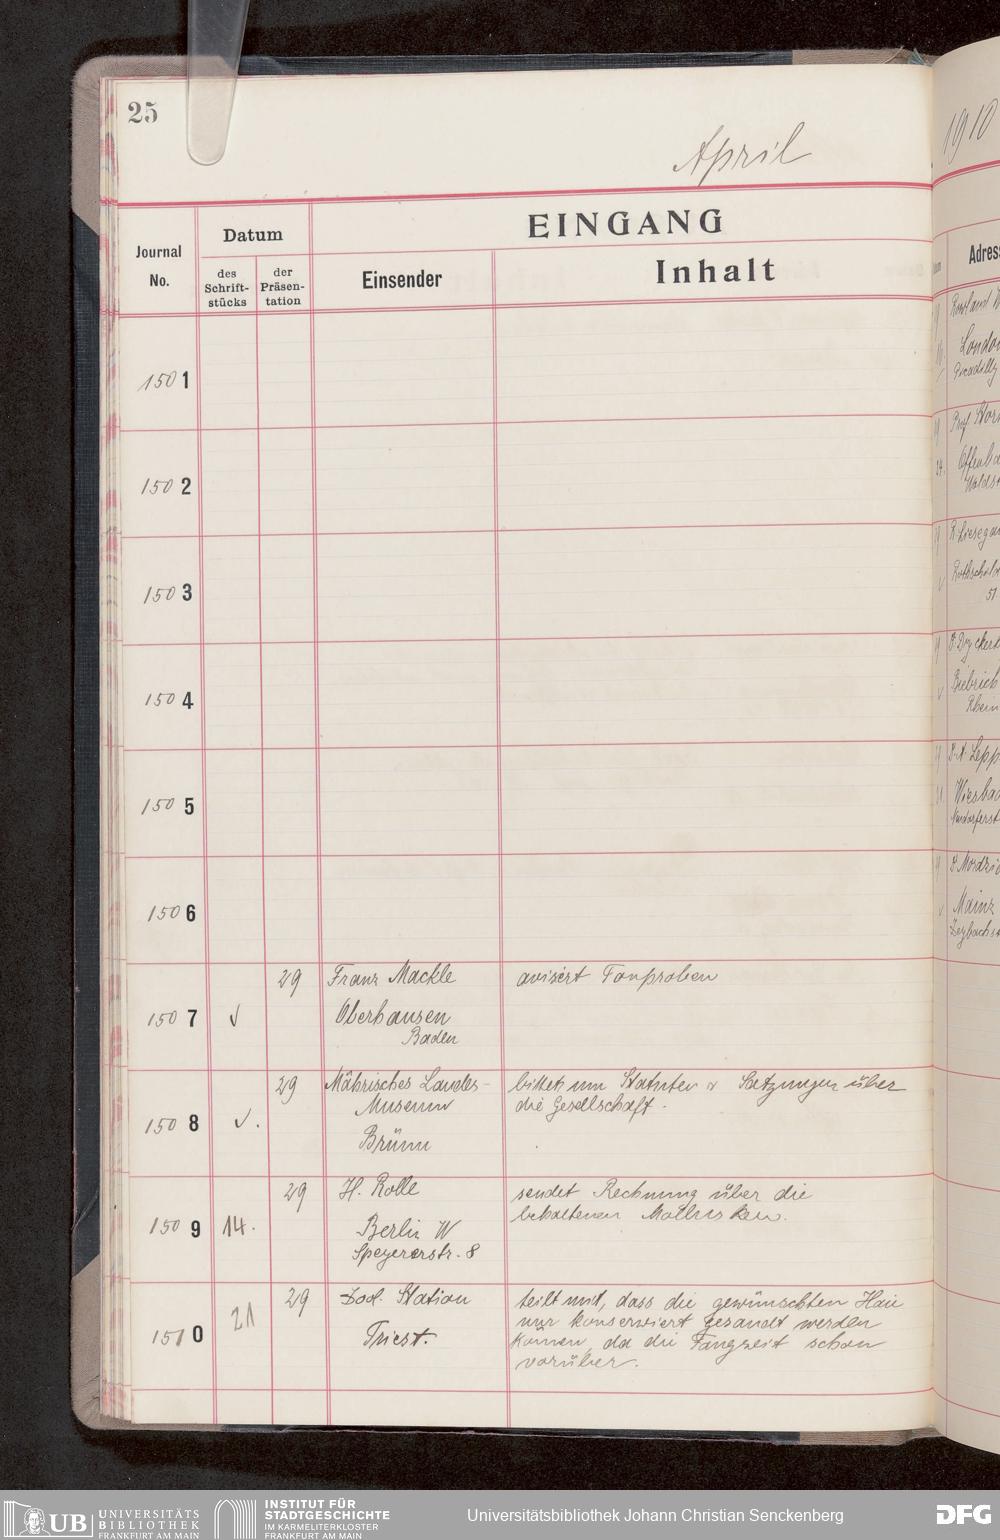 25
April
1910
EINGANG
Journal
No.
Datum
des
Schrift-
stücks
der
Präsen-
tation
Einsender
Inhalt
Adres
150 1
150 2
150 3
150 4
150 5
150 6
150 7
29
Franz Mackle
Oberhausen
Baden
avisiert Tonproben
150 8
29
Mährisches Landes-
Museum
Brünn
bittet um Statuten & Satzungen über
die Gesellschaft.
150 9
14.
29
H. Rolle
Berlin W
Speyererstr. 8
sendet Rechnung über die
behaltenen Mollusken.
151 0
21
29
Zool. Station
Triest.
teilt mit, dass die gewünschten Haie
nur konserviert gesandt werden
können, da die Fangzeit schon
vorüber.
London
Picadilly
Prof.
Offenba
51
Biebrich
Rhein
Wiesbad
Mainz
UB
UNIVERSITÄTS
BIBLIOTHEK
FRANKFURT AM MAIN
INSTITUT FÜR
STADTGESCHICHTE
IM KARMELITERKLOSTER
FRANKFURT AM MAIN
Universitätsbibliothek Johann Christian Senckenberg
DFG